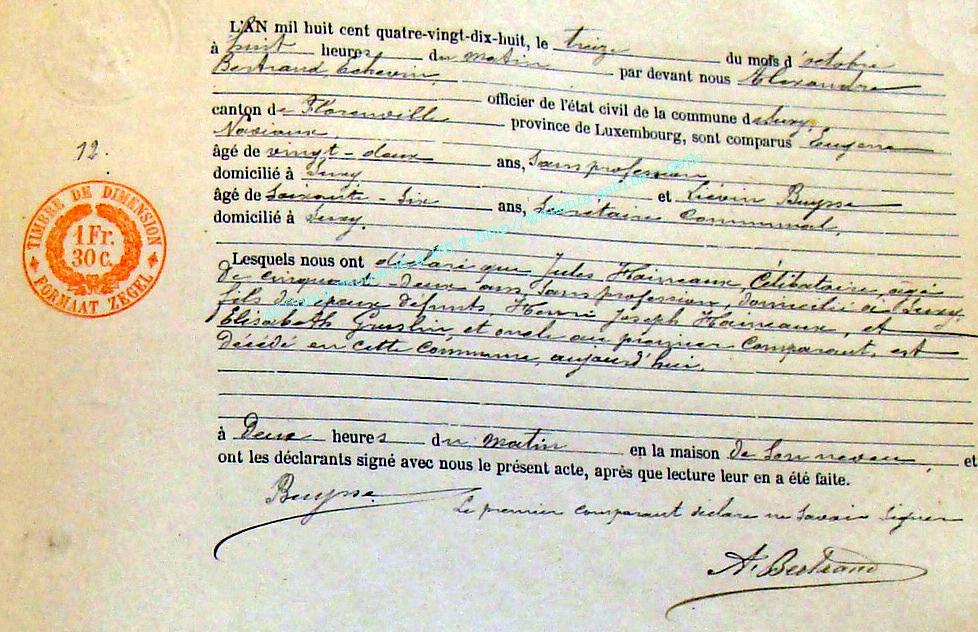 L'AN mil huit cent quatre-vingt-dix-huit, le treize du mois d'octobre
à huit heures du matin par devant nous Alexandre
Bertrand Echevin
officier de l'état civil de la commune de Suxy,
canton de Florenville province de Luxembourg, sont comparus Eugène
Nosiaux
âgé de vingt-deux ans, sans profession
domicilié à Suxy et Liévin Buysse
âgé de soixante-six ans, Secrétaire communal,
domicilié à Suxy.
Lesquels nous ont déclaré que Jules Haineaux, Célibataire, âgé
de cinquante-deux ans sans profession, domicilié à Suxy,
fils des époux défunts, Henri Joseph Haineaux, et
Elisabeth Guislin, et oncle au premier comparant, est
décédé en cette commune, aujourd'hui.
à Deux heures du matin en la maison de son neveu, et
ont les déclarants signé avec nous le présent acte, après que lecture leur en a été faite.
Buysse
Le premier comparant déclare ne savoir signer
A. Bertrand
12.
TIMBRE DE DIMENSION
1 Fr.
30 C.
FORMAAT ZEGEL